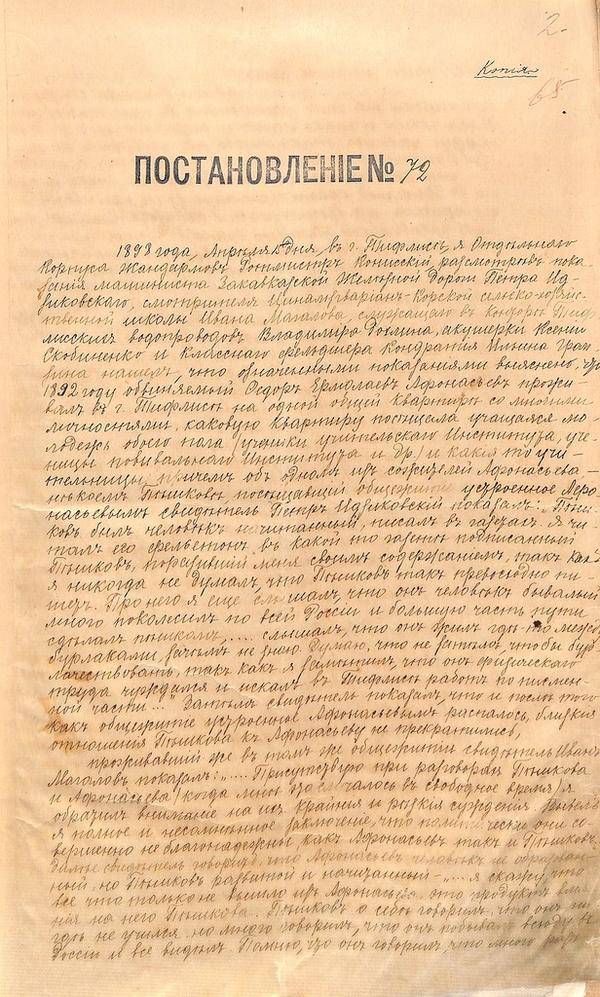 2.
Копія
65
ПОСТАНОВЛЕНІЕ № 72
1898 года, Апреля дня, въ г. Тифлисѣ, я Отдѣльнаго
Корпуса Жандармовъ Ротмистръ Конисскій, разсмотрѣвъ пока-
занія машиниста Закавказской Желѣзной Дороги Петра Ид-
виковскаго, смотрителя Цинамдзваріан-Корской сельско-хозяй-
ственной школы Ивана Магалова, служащаго въ конторѣ Тиф-
лисскихъ водопроводовъ Владиміра акушерки Ксеніи
Скобиненко и класснаго фельдшера Кондратія Ильина
нашелъ, что означенными показаніями выяснено, что
1892 году обвиняемый Ѳедоръ Ермолаевъ Афонасьевъ прожи-
валъ въ г. Тифлисѣ на одной общей квартирѣ со многими
личностями, каковую квартиру посѣщала учащаяся мо-
лодежь обоего пола /ученики учительскаго Института, уче-
ницы повивальнаго Института и др./ и какія то учи-
тельницы, причемъ объ одномъ изъ сожителей Афонасьева —
нѣкоемъ Пѣшковѣ, посѣщавшій общежитіе устроенное Афо-
насьевымъ свидѣтель Петръ Идвиковскій показалъ: „Пѣш-
ковъ былъ человѣкъ начитанный, писалъ въ газетахъ. Я чи-
талъ его фельетонъ, въ какой то газетѣ подписанный
Пѣшковъ, поразившій меня своимъ содержаніемъ, такъ какъ
я никогда не думалъ, что Пѣшковъ такъ превосходно пи-
шетъ. Про него я еще слышалъ, что онъ человѣкъ бывалый
много поколесилъ по всей Россіи и большую часть пути
сдѣлалъ пѣшкомъ, .... слышалъ, что онъ жилъ гдѣ-то между
бурлаками, зачѣмъ не знаю. Думаю, что не затѣмъ, чтобы бур-
лачествовать, такъ какъ я замѣтилъ, что онъ физическаго
труда чуждался и искалъ въ Тифлисѣ работъ по письмен-
ной части..." Затѣмъ свидѣтель показалъ, что и послѣ того
какъ общежитіе устроенное Афонасьевымъ распалось, близкія
отношенія Пѣшкова къ Афонасьеву не прекратились,
проживавшій же въ томъ же общежитіи свидѣтель Иванъ
Магаловъ показалъ: „.... Присутствуя при разговорахъ Пѣшкова
и Афонасьева /когда мнѣ это случалось въ свободное время/ я
обратилъ вниманіе на ихъ крайнія и рѣзкія сужденія.
я полное и несомнѣнное заключеніе, что политически они со-
вершенно не благонадежны какъ Афонасьевъ такъ и Пѣшковъ.
Далѣе свидѣтель говоритъ, что Афонасьевъ человѣкъ не образован-
ный, но Пѣшковъ развитой и начитанный — „... я скажу, что
все что только не вышло изъ Афонасьева, это продуктъ влія-
нія на него Пѣшкова. Пѣшковъ о себѣ говорилъ, что онъ ни-
гдѣ не учился, но много говорилъ, что онъ побывалъ всюду въ
Россіи и все видѣлъ. Помню, что онъ говорилъ, что много